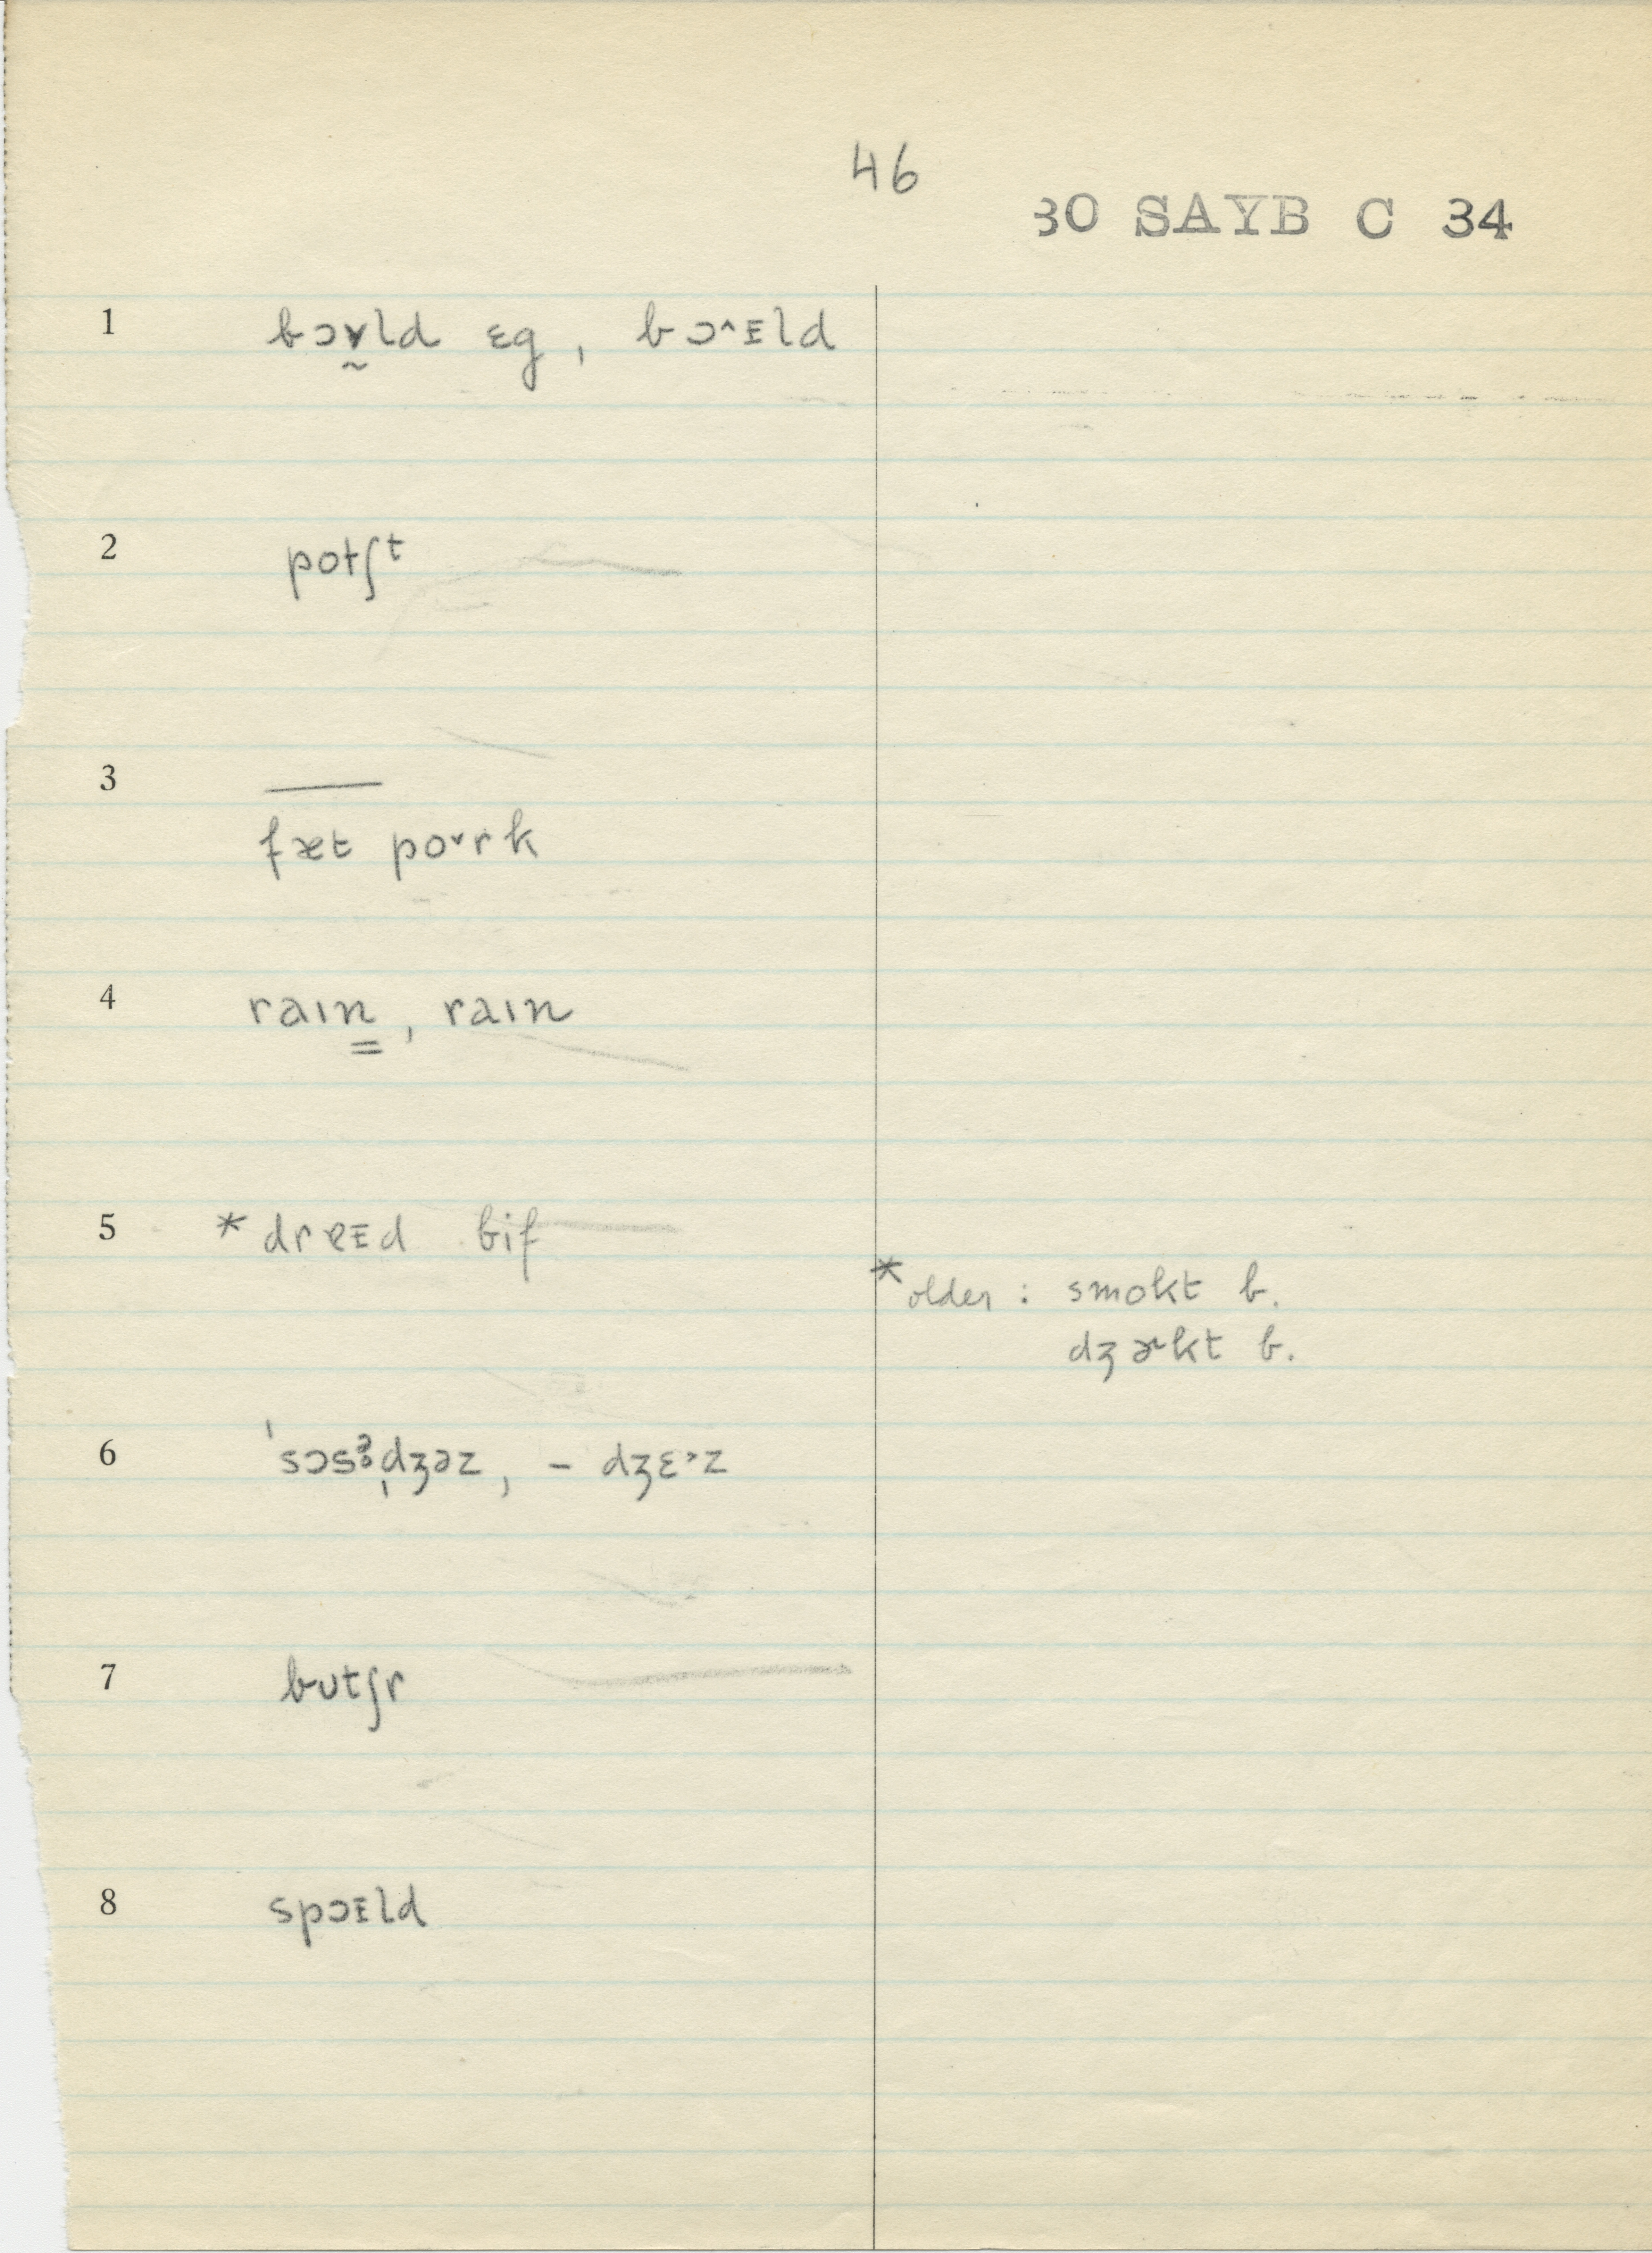 46
30 SAYB C 34
1 bɔɣ̰ld ɛg, bɔ˄ᴇld
2 potʃᵗ
3 ——
fæt po˅rk
4 raın̳, raın
5 *drɐᴇd bif
*older : smokt b.
dʒɚkt b.
6 ˈsɔsə̥ˌdʒəz, – dʒɛ˃z
7 bʊtʃr
8 spɔᴇld